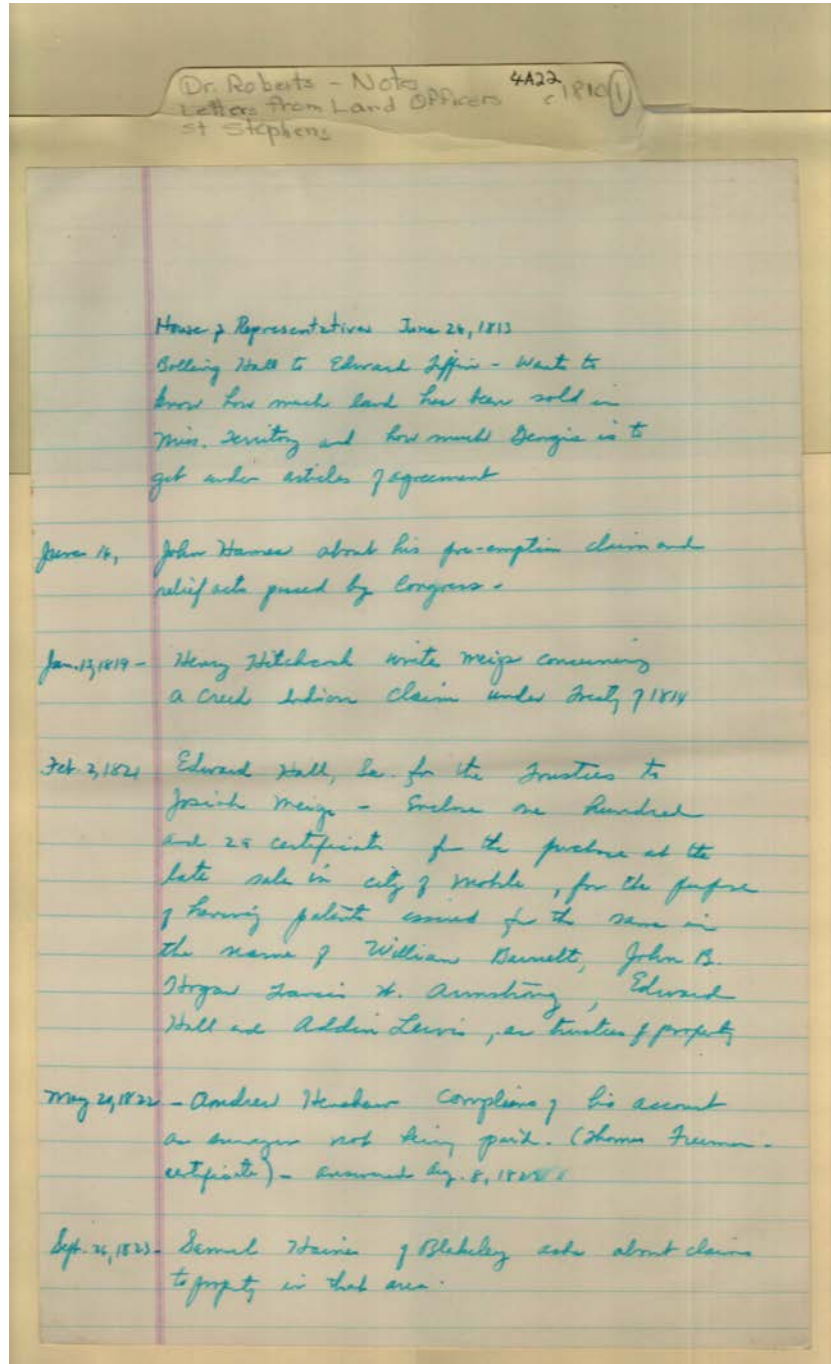 Dr. Roberts - Notes 4A22 c 1810 (1)
Letters from Land Officers
St Stephens
House of Representatives June 26, 1813
Bolling Hall to Edward Tiffin - Wants to
know how much land has been sold in
Miss. Territory and how much Georgia is to
get under articles of agreement
June 16, John Hames about his pre-emption claim and
relief acts passed by Congress.
Jan. 13, 1819 - Henry Hitchcock write Meigs concerning
a Creek Indian Claim under Treaty of 1814
Feb. 2, 1821 Edward Hall, Sec. for the Trustees to
Josiah Meigs - Enclose one hundred
and 28 certificates for the purchase at the
late sale in city of Mobile, for the purpose
of having patents issued for the same in
the name of William Barnett, John B.
Hogan Francis W. Armstrong, Edward
Hall and Addin Lewis, as trustees of property
May 20, 1822 - Andrew Henshaw complains of his account
as surveyor not being paid. (Thomas Freeman -
certificate) - answered Aug. 8, 1822
Sept. 26, 1823 - Samuel Haines of Blakeley asks about claims
to property in that area.